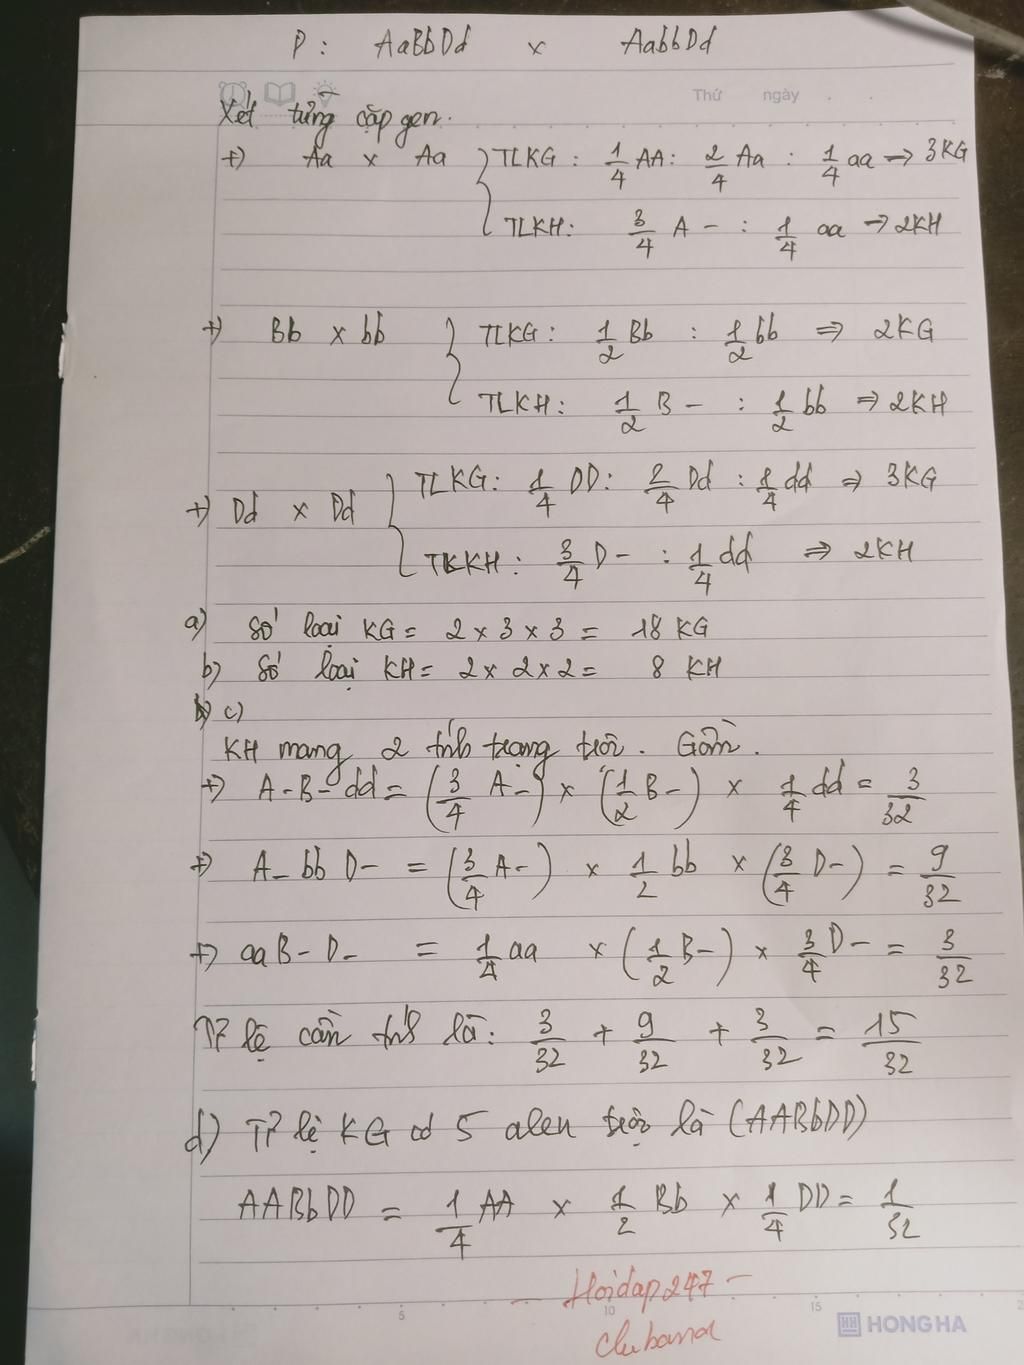 P: AaBbDd x AabbDd
Thứ ngày . .
Xét từng cặp gen.
+) Aa x Aa TLKG: 1/4 AA: 2/4 Aa : 1/4 aa → 3KG
TLKH: 3/4 A - : 1/4 aa → 2KH
+) Bb x bb TLKG: 1/2 Bb : 1/2 bb ⇒ 2KG
TLKH: 1/2 B - : 1/2 bb ⇒ 2KH
TLKG: 1/4 DD: 2/4 Dd : 1/4 dd ⇒ 3KG
+) Dd x Dd
TLKH: 3/4 D - : 1/4 dd ⇒ 2KH
a) Số loại KG = 2 x 3 x 3 = 18 KG
b) Số loại KH = 2 x 2 x 2 = 8 KH
c)
KH mang 2 tính trạng trội. Gồm.
+) A-B-dd = (3/4 A-) x (1/2 B-) x 1/4 dd = 3/32
+) A_bbD- = (3/4 A-) x 1/2 bb x (3/4 D-) = 9/32
+) aaB-D- = 1/4 aa x (1/2 B-) x 3/4 D- = 3/32
Tỉ lệ cần tính là: 3/32 + 9/32 + 3/32 = 15/32
d) Tỉ lệ KG có 5 alen trội là (AABbDD)
AABbDD = 1/4 AA x 1/2 Bb x 1/4 DD = 1/32
- Hoidap247 -
5 10 15
HH HONG HA